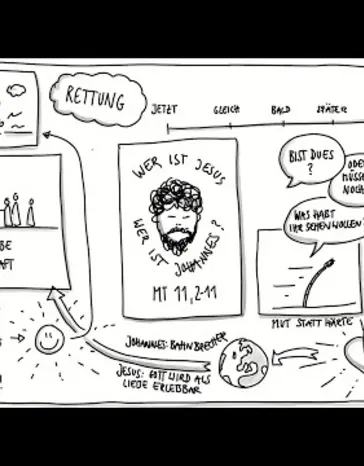 RETTUNG
JETZT GLEICH BALD SPÄTER
WER IST JESUS
WER IST JOHANNES?
MT 11, 2-11
BIST DU ES
?
ODER
MÜSSE
NOCH
WAS HABT
IHR SEHEN WOLLEN?
MUT STATT HÄRTE
BE
AFT
JOHANNES: BAHNBRECHER
JESUS: GOTT WIRD ALS
LIEBE ERLEBBAR